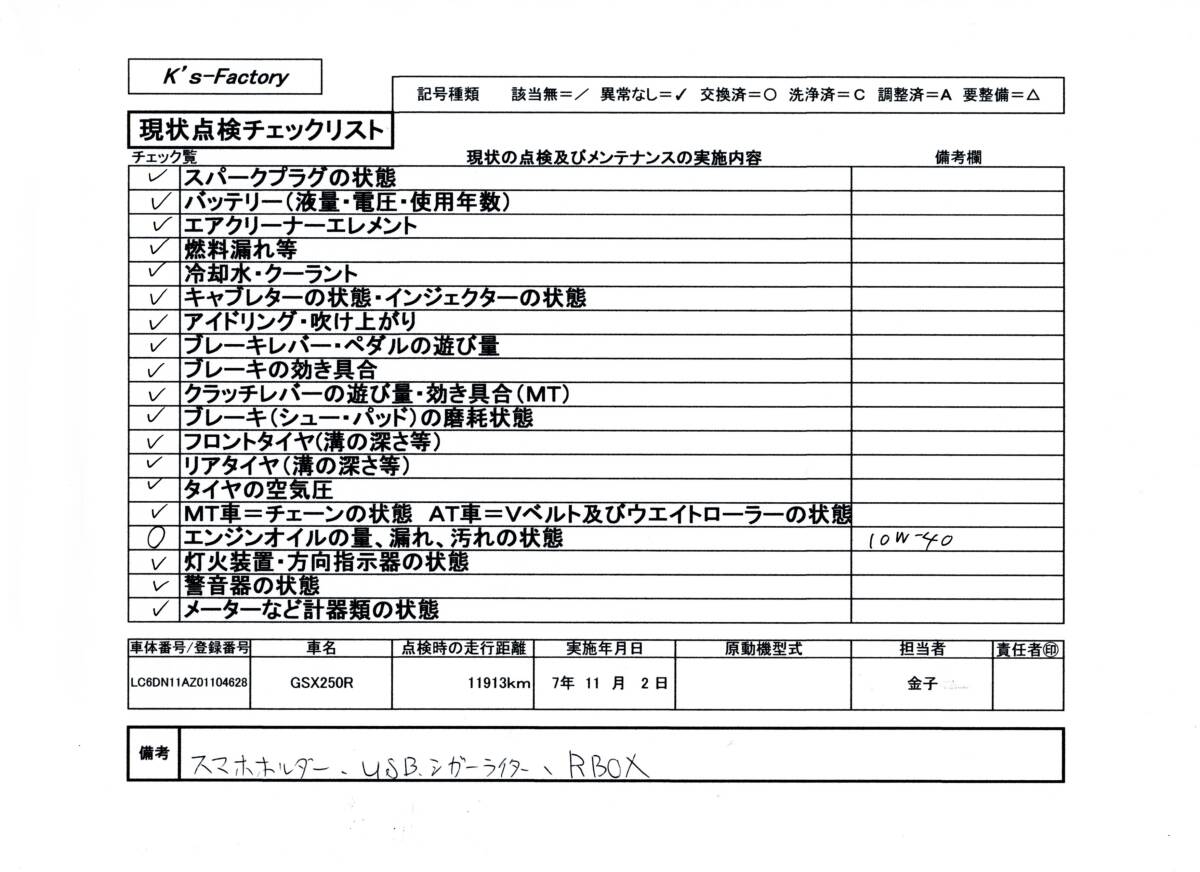 K's-Factory
記号種類　該当無=／ 異常なし=✓ 交換済=○ 洗浄済=C 調整済=A 要整備=△
現状点検チェックリスト
チェック覧　現状の点検及びメンテナンスの実施内容　備考欄
✓ スパークプラグの状態
✓ バッテリー(液量・電圧・使用年数)
✓ エアクリーナーエレメント
✓ 燃料漏れ等
✓ 冷却水・クーラント
✓ キャブレターの状態・インジェクターの状態
✓ アイドリング・吹け上がり
✓ ブレーキレバー・ペダルの遊び量
✓ ブレーキの効き具合
✓ クラッチレバーの遊び量・効き具合(MT)
✓ ブレーキ(シュー・パッド)の磨耗状態
✓ フロントタイヤ(溝の深さ等)
✓ リアタイヤ(溝の深さ等)
✓ タイヤの空気圧
✓ MT車=チェーンの状態　AT車=Vベルト及びウエイトローラーの状態
○ エンジンオイルの量、漏れ、汚れの状態　10W-40
✓ 灯火装置・方向指示器の状態
✓ 警音器の状態
✓ メーターなど計器類の状態
車体番号/登録番号　車名　点検時の走行距離　実施年月日　原動機型式　担当者　責任者㊞
LC6DN11AZ01104628　GSX250R　11913km　7年 11 月 2 日　金子
備考　スマホホルダー、USB.シガーライター、RBOX